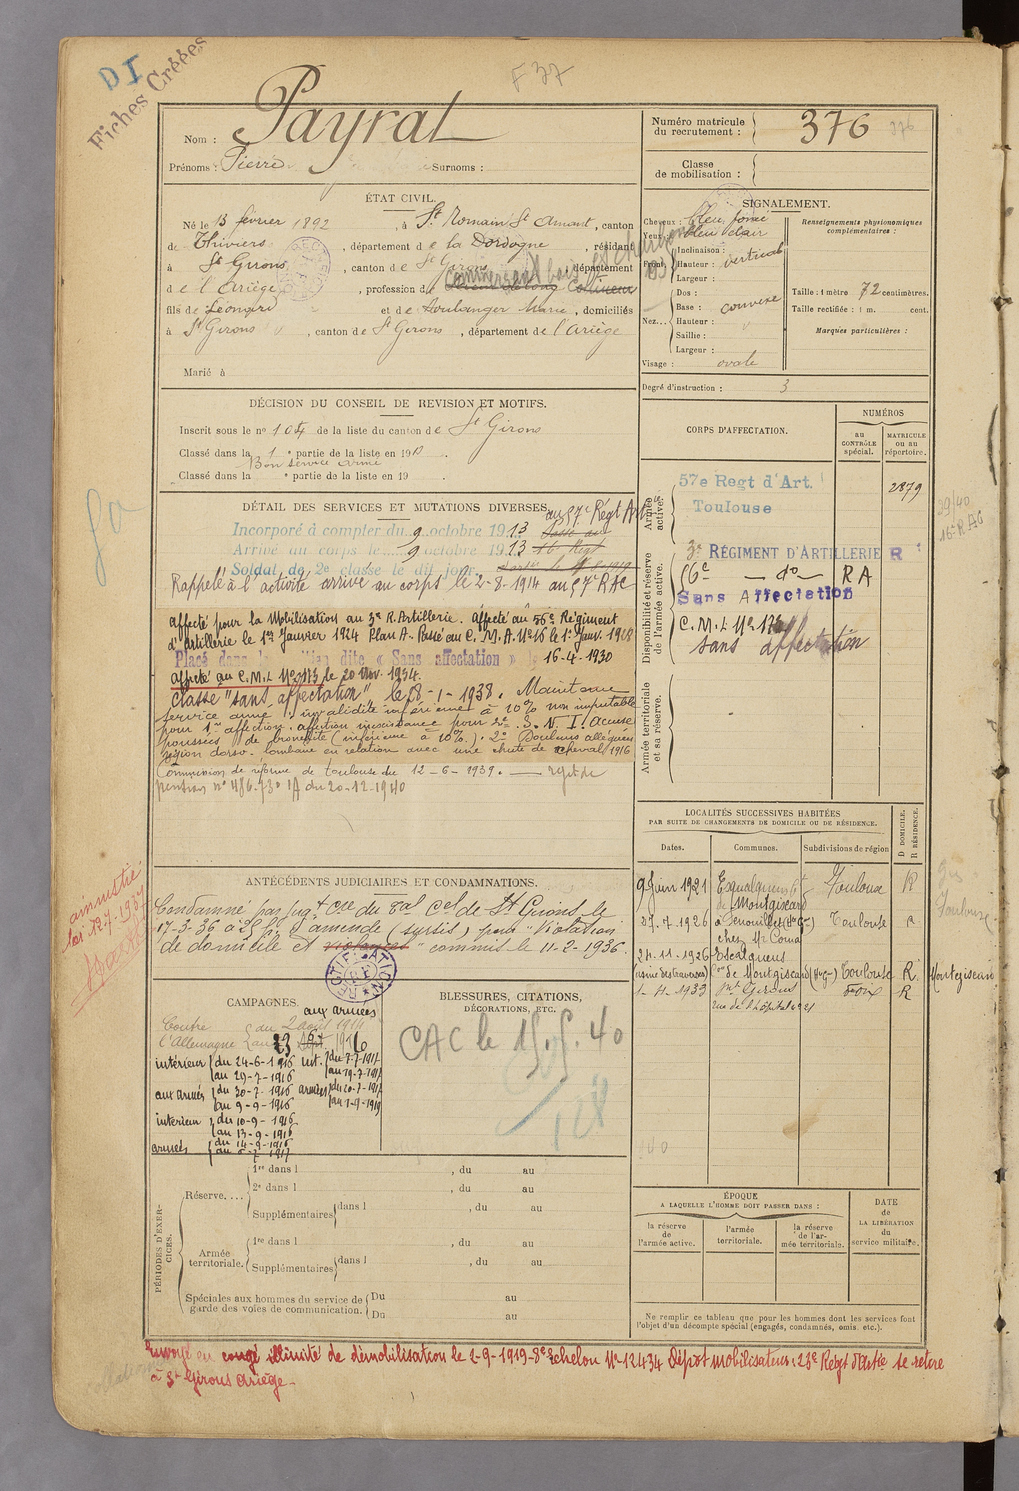 DI
Fiches Créées
F 37
Nom : Payrat
Prénoms : Pierre Surnoms :
Numéro matricule
du recrutement : 376
376
Classe
de mobilisation :
ÉTAT CIVIL.
Né le 13 février 1892, à St Romain St Amant, canton
de Thiviers, département de la Dordogne, résidant
à St Girons, canton de St Girons, département
de l'Ariège, profession de Commerçant bois et charbons
fils de Léonard et de Boulanger Marie, domiciliés
à St Girons, canton de St Girons, département de l'Ariège
Marié à
SIGNALEMENT.
Cheveux : bleu foncé
Yeux : bleu clair
Front Inclinaison :
Hauteur : vertical
Largeur :
Nez... Dos :
Base : convexe
Hauteur :
Saillie :
Largeur :
Visage : ovale
Renseignements physionomiques
complémentaires :
Taille : 1 mètre 72 centimètres.
Taille rectifiée : 1 m. cent.
Marques particulières :
Degré d'instruction : 3
DÉCISION DU CONSEIL DE REVISION ET MOTIFS.
Inscrit sous le no 104 de la liste du canton de St Girons
Classé dans la 1e partie de la liste en 1913.
Bon service armé
Classé dans la e partie de la liste en 19 .
CORPS D'AFFECTATION.
NUMÉROS
au
CONTRÔLE
spécial.
MATRICULE
ou au
répertoire.
Armée
active.
57e Regt d'Art.
Toulouse
2879
Disponibilité et réserve
de l'armée active.
3e RÉGIMENT D'ARTILLERIE R
56e — do — RA
Sans Affectation
C.M.I. No 173
sans affectation
29/40
16e RAC
Armée territoriale
et sa réserve.
DÉTAIL DES SERVICES ET MUTATIONS DIVERSES.
au 57e Régt Art
Incorporé à compter du 9 octobre 1913
Arrivé au corps le 9 octobre 1913
Soldat de 2e classe le dit jour
Rappelé à l'activité arrivé au corps le 2-8-1914 au 57e RAC
affecté pour la Mobilisation au 3e R. Artillerie. affecté au 56e Régiment
d'artillerie le 1er Janvier 1924 Plan A. Passé au C.M.A. No 16 le 1er Janv. 1928
Placé dans la dite « Sans affectation » le 16-4-1930
affecté au C.M.I. No 173 le 20 Nov. 1934.
Classé "sans affectation", le 8-1-1938. Maintenu
service armé, invalidité inférieure à 10% non imputable
pour 1re affection, affection inexistance pour 2e. S.N.I. accuse
poussées de bronchite (inférieure à 10%). 2e Douleurs alléguées
région dorso-lombaire en relation avec une chute de cheval 1916
Commission de réforme de Toulouse du 12-6-1939. — rejet de
pension no 486.730 IA du 20-12-1940
ANTÉCÉDENTS JUDICIAIRES ET CONDAMNATIONS.
amnistié
loi 12-7-1937
Condamné par jugt Cre du Bal Cel de St Girons le
17-3-36 à 25 f. d'amende (sursis) pour "Violation
de domicile et violences" commis le 11-2-1936.
RECTIFICATION
LOCALITÉS SUCCESSIVES HABITÉES
PAR SUITE DE CHANGEMENTS DE DOMICILE OU DE RÉSIDENCE.
Dates. Communes. Subdivisions de région
D DOMICILE.
R RÉSIDENCE.
9 Juin 1921 Esqualquens Ct de Montgiscard Toulouse R
27.7.1926 à Fenouillet (Hte G-) chez Mr Coma Toulouse R
24.11.1926 Escalquens
(usine des Graveurs) Con de Montgiscard (Hte G-) Toulouse R Montgiscard
1-4-1933 St Girons Foix R
rue de l'hôpital no 21
Toulouse
CAMPAGNES.
aux armées
Contre
l'Allemagne du 2 août 1914
au 23 6 1916
intérieur du 24-6-1916
au 29-7-1916
aux armées du 30-7-1916
au 9-9-1916
intérieur du 10-9-1916
au 13-9-1916
armées du 14-9-1916
au 6-7-1917
int. du 7-7-1917
au 19-7-1917
armées du 20-7-1917
au 1-9-1919
BLESSURES, CITATIONS,
DÉCORATIONS, ETC.
CAC le 15.5.40
128
PÉRIODES D'EXERCICES.
Réserve.... 1re dans l , du au
2e dans l , du au
Supplémentaires dans l , du au
Armée
territoriale. 1re dans l , du au
Supplémentaires dans l , du au
Spéciales aux hommes du service de
garde des voies de communication. Du au
Du au
ÉPOQUE
A LAQUELLE L'HOMME DOIT PASSER DANS :
la réserve
de
l'armée active.
l'armée
territoriale.
la réserve
de l'ar-
mée territoriale.
DATE
de
LA LIBÉRATION
du
service militaire.
Ne remplir ce tableau que pour les hommes dont les services font
l'objet d'un décompte spécial (engagés, condamnés, omis, etc.).
Envoyé en congé illimité de démobilisation le 2-9-1919-8e échelon No 12434 Dépôt mobilisateur : 23e Régt d'Artie se retire
à St Girons Ariège-